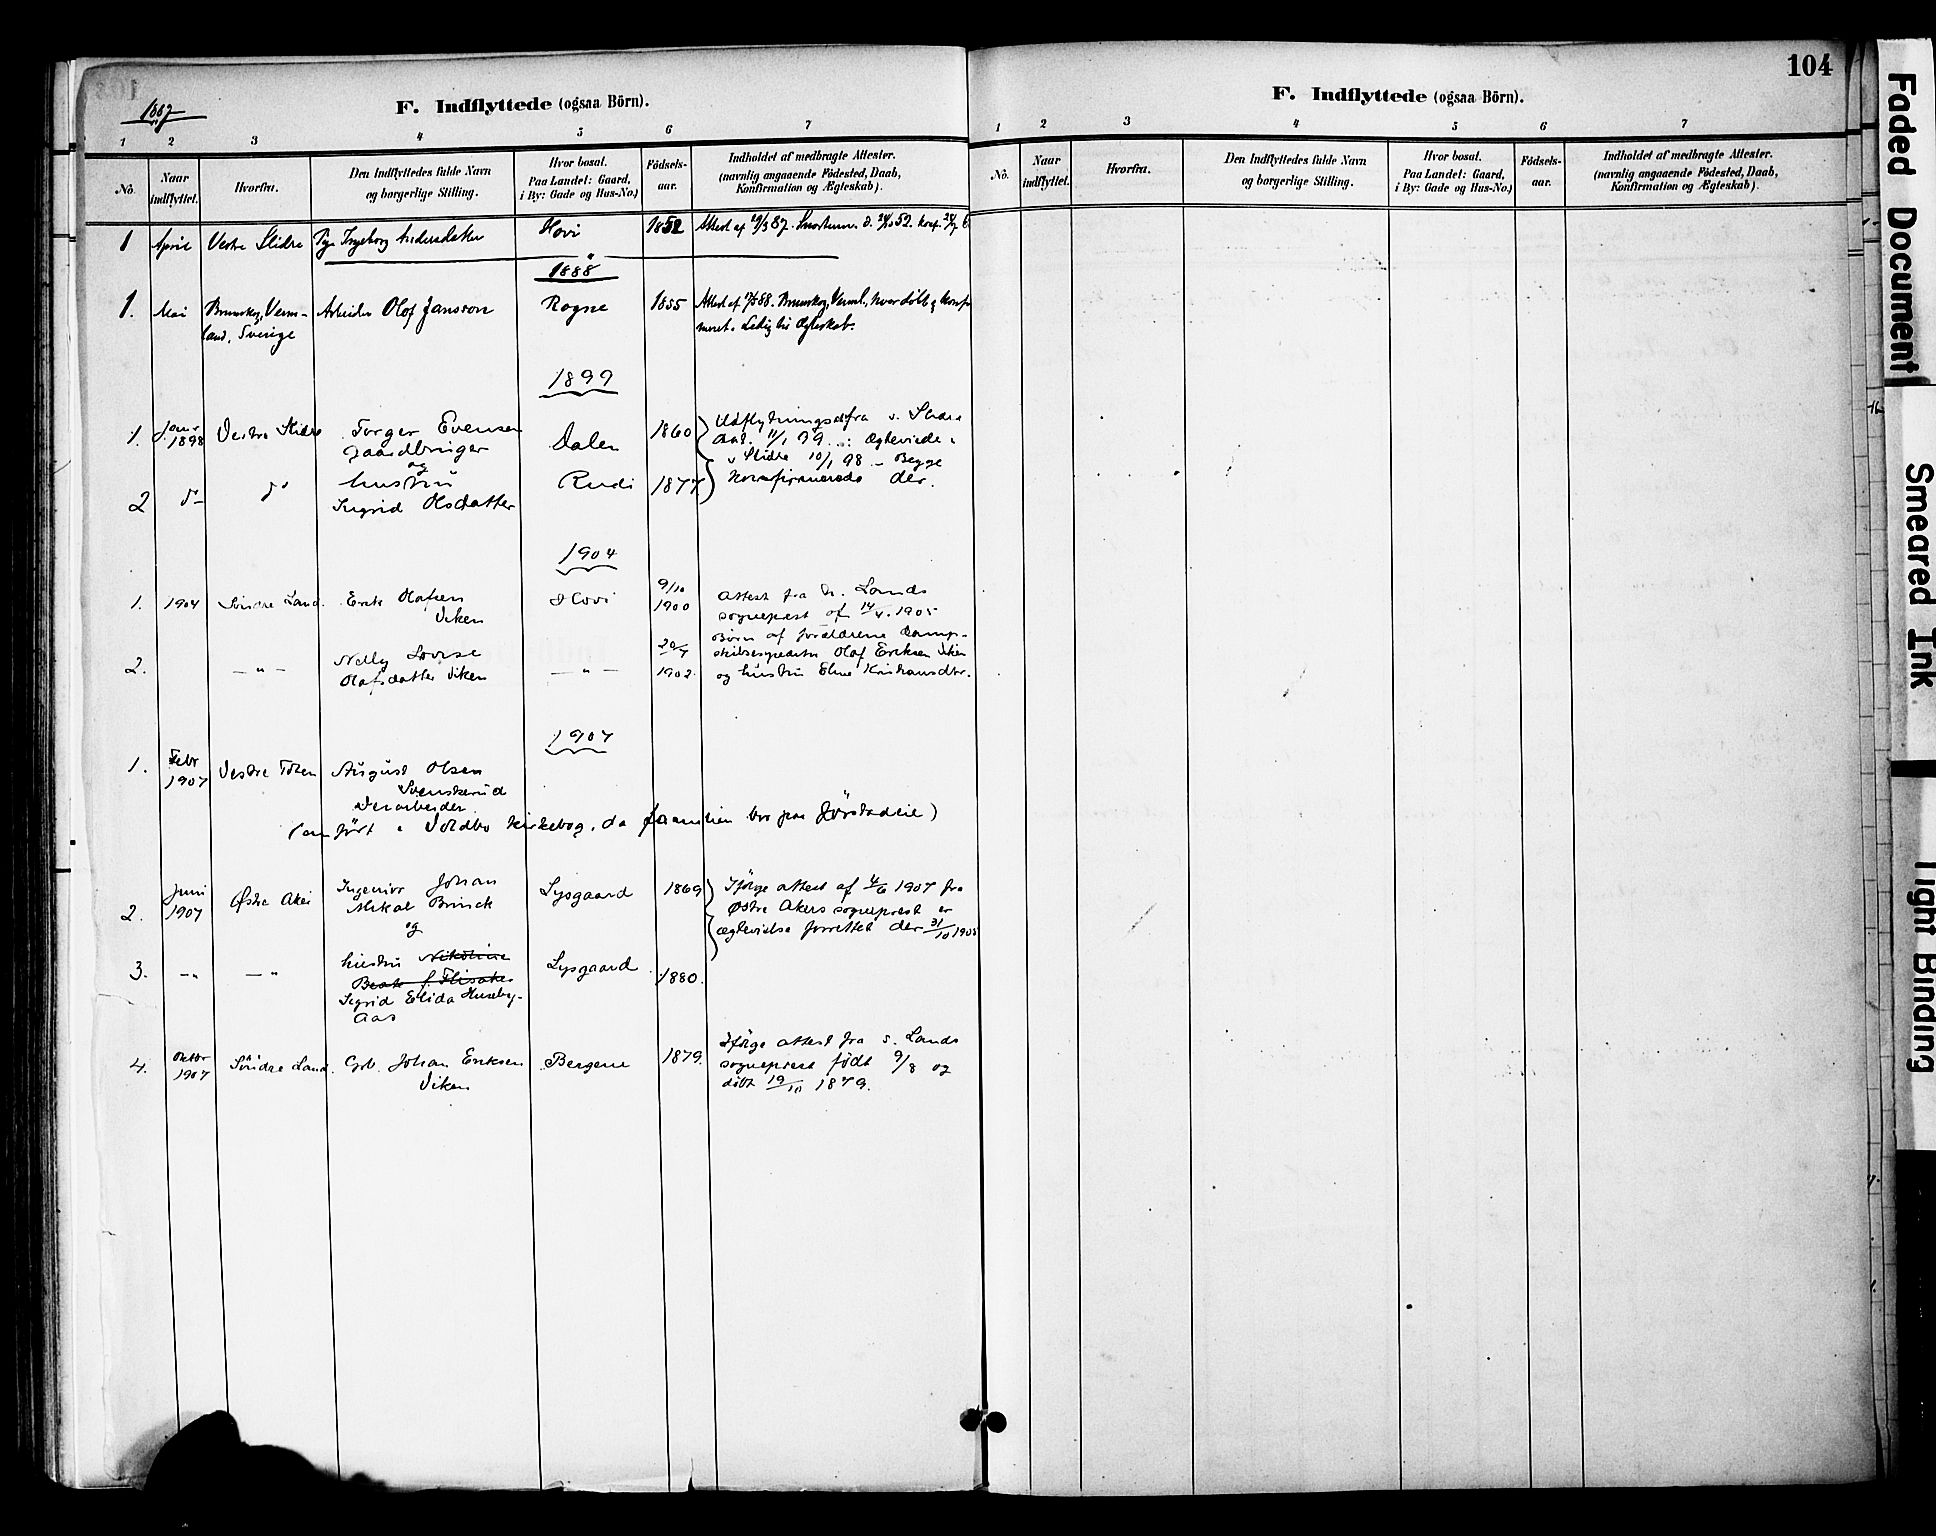 F. Indflyttede (ogsaa Börn).
1 2 3 4 5 6 7
No. Naar indflyttet. Hvorfra. Den Indflyttedes fulde Navn og borgerlige Stilling. Hvor bosat. Paa Landet: Gaard, i By: Gade og Hus-No.) Födsels-aar. Indholdet af medbragte Attester. (navnlig angaaende Födested, Daab, Konfirmation og Ægteskab).
1 April Vestre Slidre Pige Ingeborg Andersdatter Hovi 1852 Attest af 19/3 87.
1888
1. Mai Brunskog, Verm-land, Sverige Arbeider Olof Jansson Rogne 1855 Attest af
Brunskog, Verml., hvor døbt og konfir-
meret. Ledig for Ægteskab.
1899
1. Januar 1898 Vestre Slidre Torger Evensen
gaardbruger Dalen 1860 Udflytningsattest fra v. Slidre
11/1 99 : Ægteviede i
og
v Slidre 10/1 98 - Begge
2 do do hustru
Ingrid Olsdatter Rudi 1877 konfirmerede der.
1904
1. 1904 Søndre Land. Erik Olafsen
Viken Hovi 9/10
1900 Attest fra Sr. Lands
sogneprest af 14/4. 1905
2. — " — Nelly Lovise
Olafsdatter Viken — " — 20/7
1902. Børn af forældrene damp-
skibsexpeditør Olaf Eriksen Viken
og hustru Eline Kristiansdtr.
1907
1. Febr
1907 Vestre Toten August Olsen
Svenskerud
Jernarbeider
(anført i Volbu kirkebog, da familien bor paa Jörstadeie)
2. Juni
1907 Østre Aker Ingeniør Johan
Mikal Brinck Lysgaard 1869 Ifölge attest af 4/6 1907 fra
Østre Akers sogneprest er
og
ægtevielse forrettet der 31/10 1905
3. — " — " hustru Nikoline
Beate f. Flisaker
Sigrid Elida Huseby-
Aas Lysgaard 1880.
4. Oktbr
1907 Söndre Land. Grb. Johan Eriksen
Viken Bergene 1879. Ifölge attest fra s. Lands
sogneprest født 9/8 og
döbt 19/10 1879.
1887
104
F. Indflyttede (ogsaa Börn).
1 2 3 4 5 6 7
No. Naar indflyttet. Hvorfra. Den Indflyttedes fulde Navn og borgerlige Stilling. Hvor bosat. Paa Landet: Gaard, i By: Gade og Hus-No.) Födsels-aar. Indholdet af medbragte Attester. (navnlig angaaende Födested, Daab, Konfirmation og Ægteskab).
Faded Document
Smeared Ink
Tight Binding